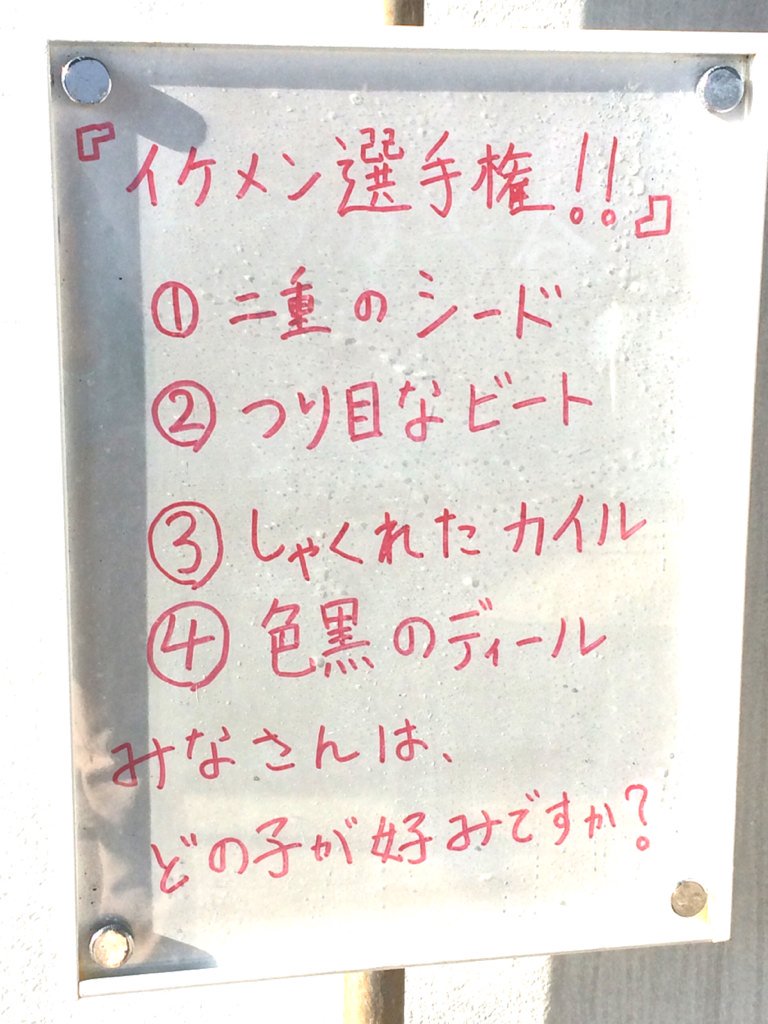 『イケメン選手権!!』
① 二重のシード
② つり目なビート
③ しゃくれたカイル
④ 色黒のディール
みなさんは、
どの子が好みですか?